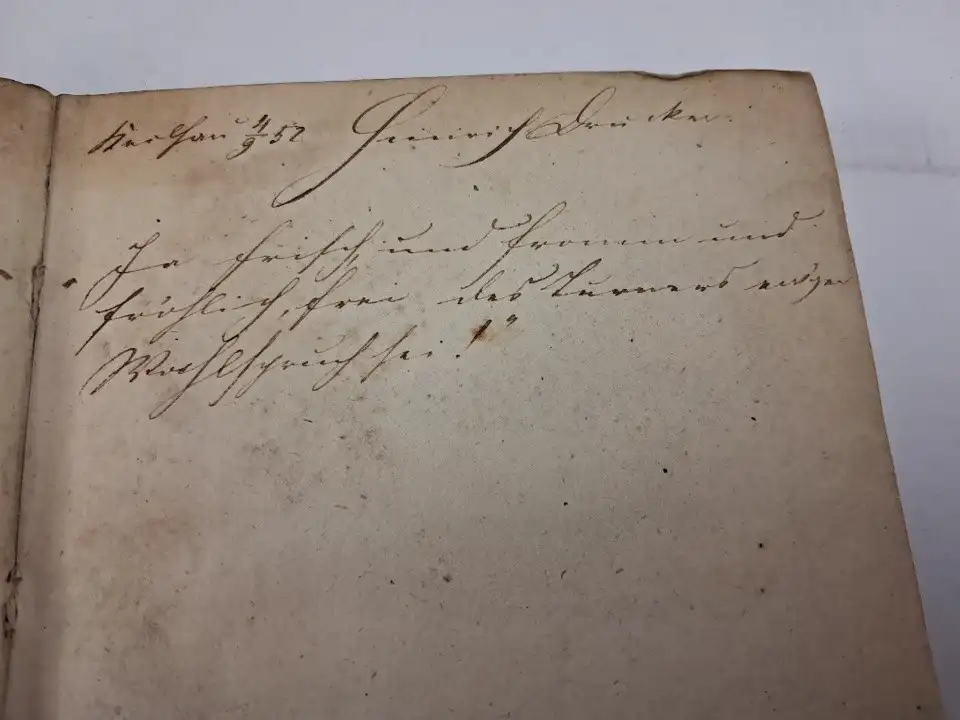 Keilhau 4/9 52 Heinrich Drucker.
„Ja frisch, und fromm und
fröhlich, frei des Turners ewger
Wahlspruch sei!“